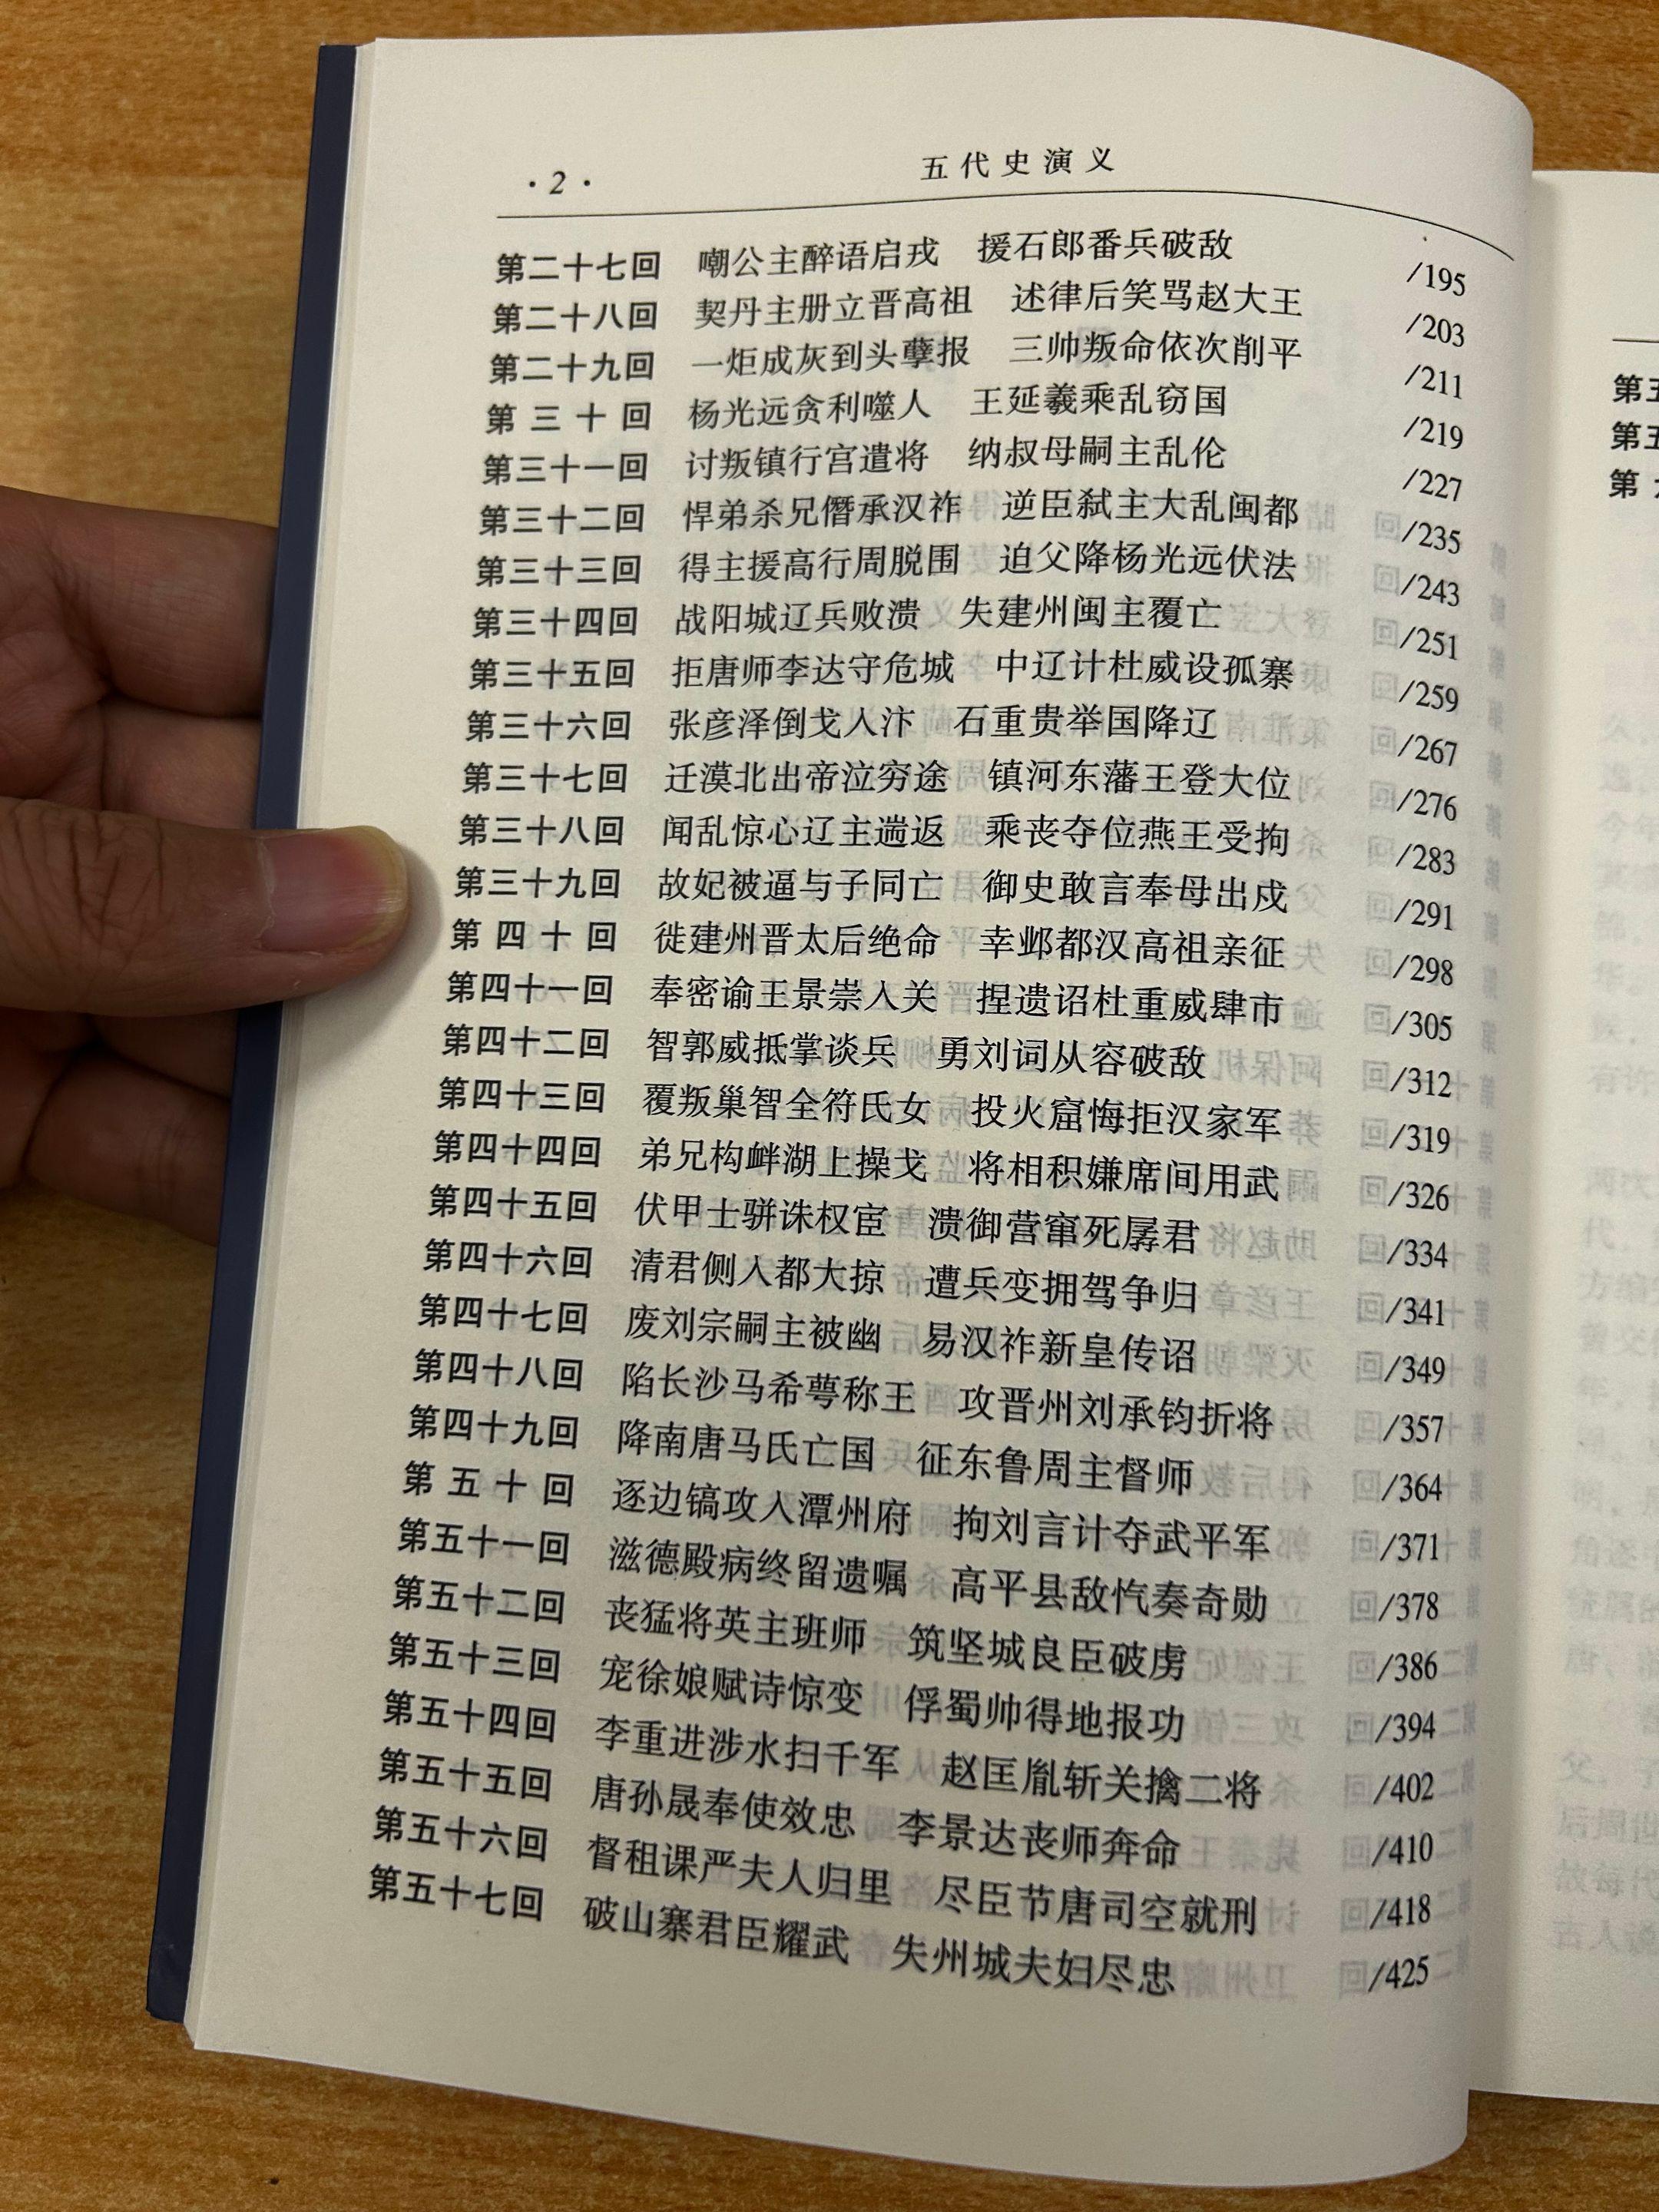 ·2·
五代史演义
第二十七回 嘲公主醉语启戎 援石郎番兵破敌 /195
第二十八回 契丹主册立晋高祖 述律后笑骂赵大王 /203
第二十九回 一炬成灰到头孽报 三帅叛命依次削平 /211
第三十回 杨光远贪利噬人 王延羲乘乱窃国 /219
第三十一回 讨叛镇行宫遣将 纳叔母嗣主乱伦 /227
第三十二回 悍弟杀兄僭承汉祚 逆臣弑主大乱闽都 /235
第三十三回 得主援高行周脱围 迫父降杨光远伏法 /243
第三十四回 战阳城辽兵败溃 失建州闽主覆亡 /251
第三十五回 拒唐师李达守危城 中辽计杜威设孤寨 /259
第三十六回 张彦泽倒戈入汴 石重贵举国降辽 /267
第三十七回 迁漠北出帝泣穷途 镇河东藩王登大位 /276
第三十八回 闻乱惊心辽主遄返 乘丧夺位燕王受拘 /283
第三十九回 故妃被逼与子同亡 御史敢言奉母出戍 /291
第四十回 徙建州晋太后绝命 幸邺都汉高祖亲征 /298
第四十一回 奉密谕王景崇入关 捏遗诏杜重威肆市 /305
第四十二回 智郭威抵掌谈兵 勇刘词从容破敌 /312
第四十三回 覆叛巢智全符氏女 投火窟悔拒汉家军 /319
第四十四回 弟兄构衅湖上操戈 将相积嫌席间用武 /326
第四十五回 伏甲士骈诛权宦 溃御营窜死孱君 /334
第四十六回 清君侧入都大掠 遭兵变拥驾争归 /341
第四十七回 废刘宗嗣主被幽 易汉祚新皇传诏 /349
第四十八回 陷长沙马希萼称王 攻晋州刘承钧折将 /357
第四十九回 降南唐马氏亡国 征东鲁周主督师 /364
第五十回 逐边镐攻入潭州府 拘刘言计夺武平军 /371
第五十一回 滋德殿病终留遗嘱 高平县敌忾奏奇勋 /378
第五十二回 丧猛将英主班师 筑坚城良臣破虏 /386
第五十三回 宠徐娘赋诗惊变 俘蜀帅得地报功 /394
第五十四回 李重进涉水扫千军 赵匡胤斩关擒二将 /402
第五十五回 唐孙晟奉使效忠 李景达丧师奔命 /410
第五十六回 督租课严夫人归里 尽臣节唐司空就刑 /418
第五十七回 破山寨君臣耀武 失州城夫妇尽忠 /425